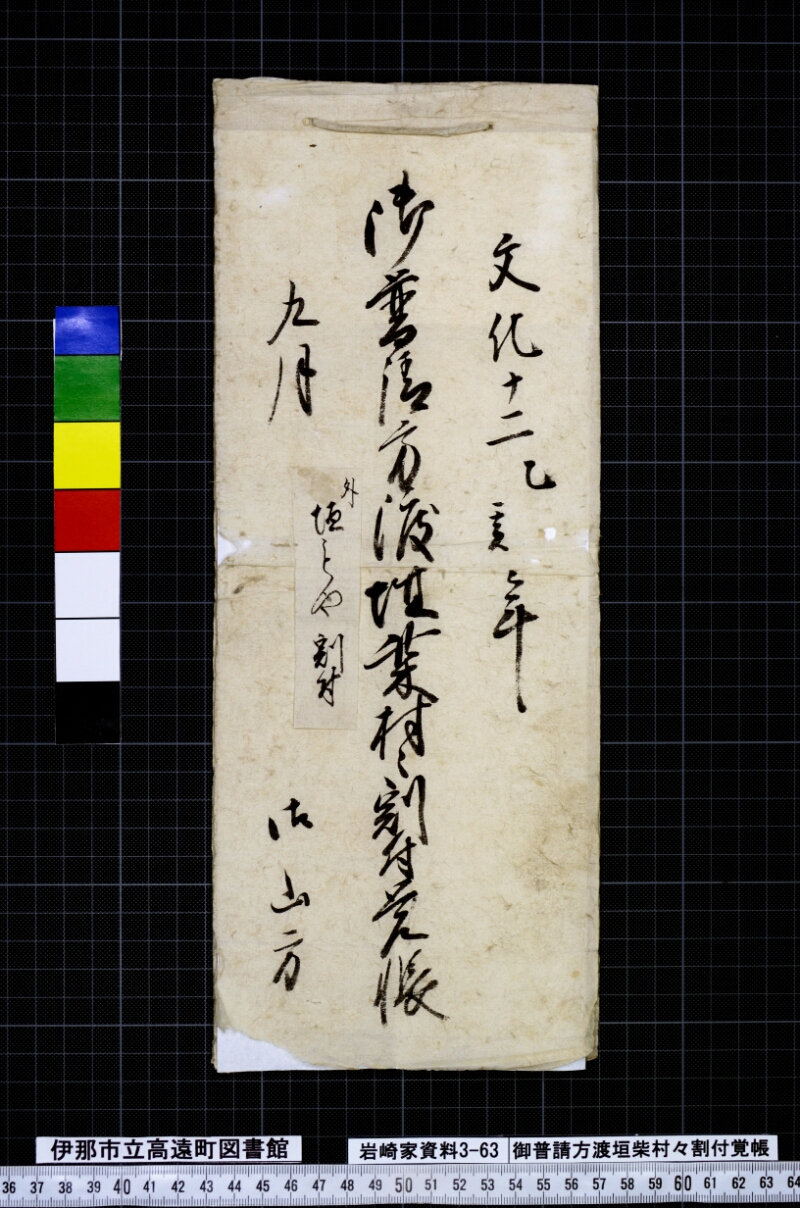 文化十二乙亥年
御普請方渡垣柴村々割付覚帳
外
垣とや割付
九月
御山方
伊那市立高遠町図書館
岩崎家資料3-63
御普請方渡垣柴村々割付覚帳
36 37 38 39 40 41 42 43 44 45 46 47 48 49 50 51 52 53 54 55 56 57 58 59 60 61 62 63 64